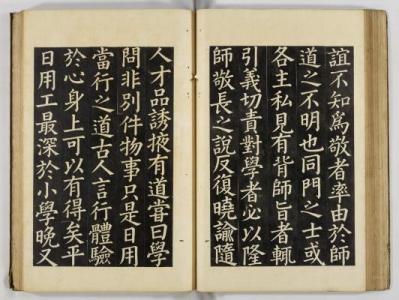 誼不知爲敬者率由於師
道之不明也同門之士或
各主私見有背師旨者輒
引義切責對學者必以隆
師敬長之說反復曉諭隨
人才品誘掖有道嘗曰學
問非別件物事只是日用
當行之道古人言行體驗
於心身上可以有得矣平
日用工最深於小學晚又